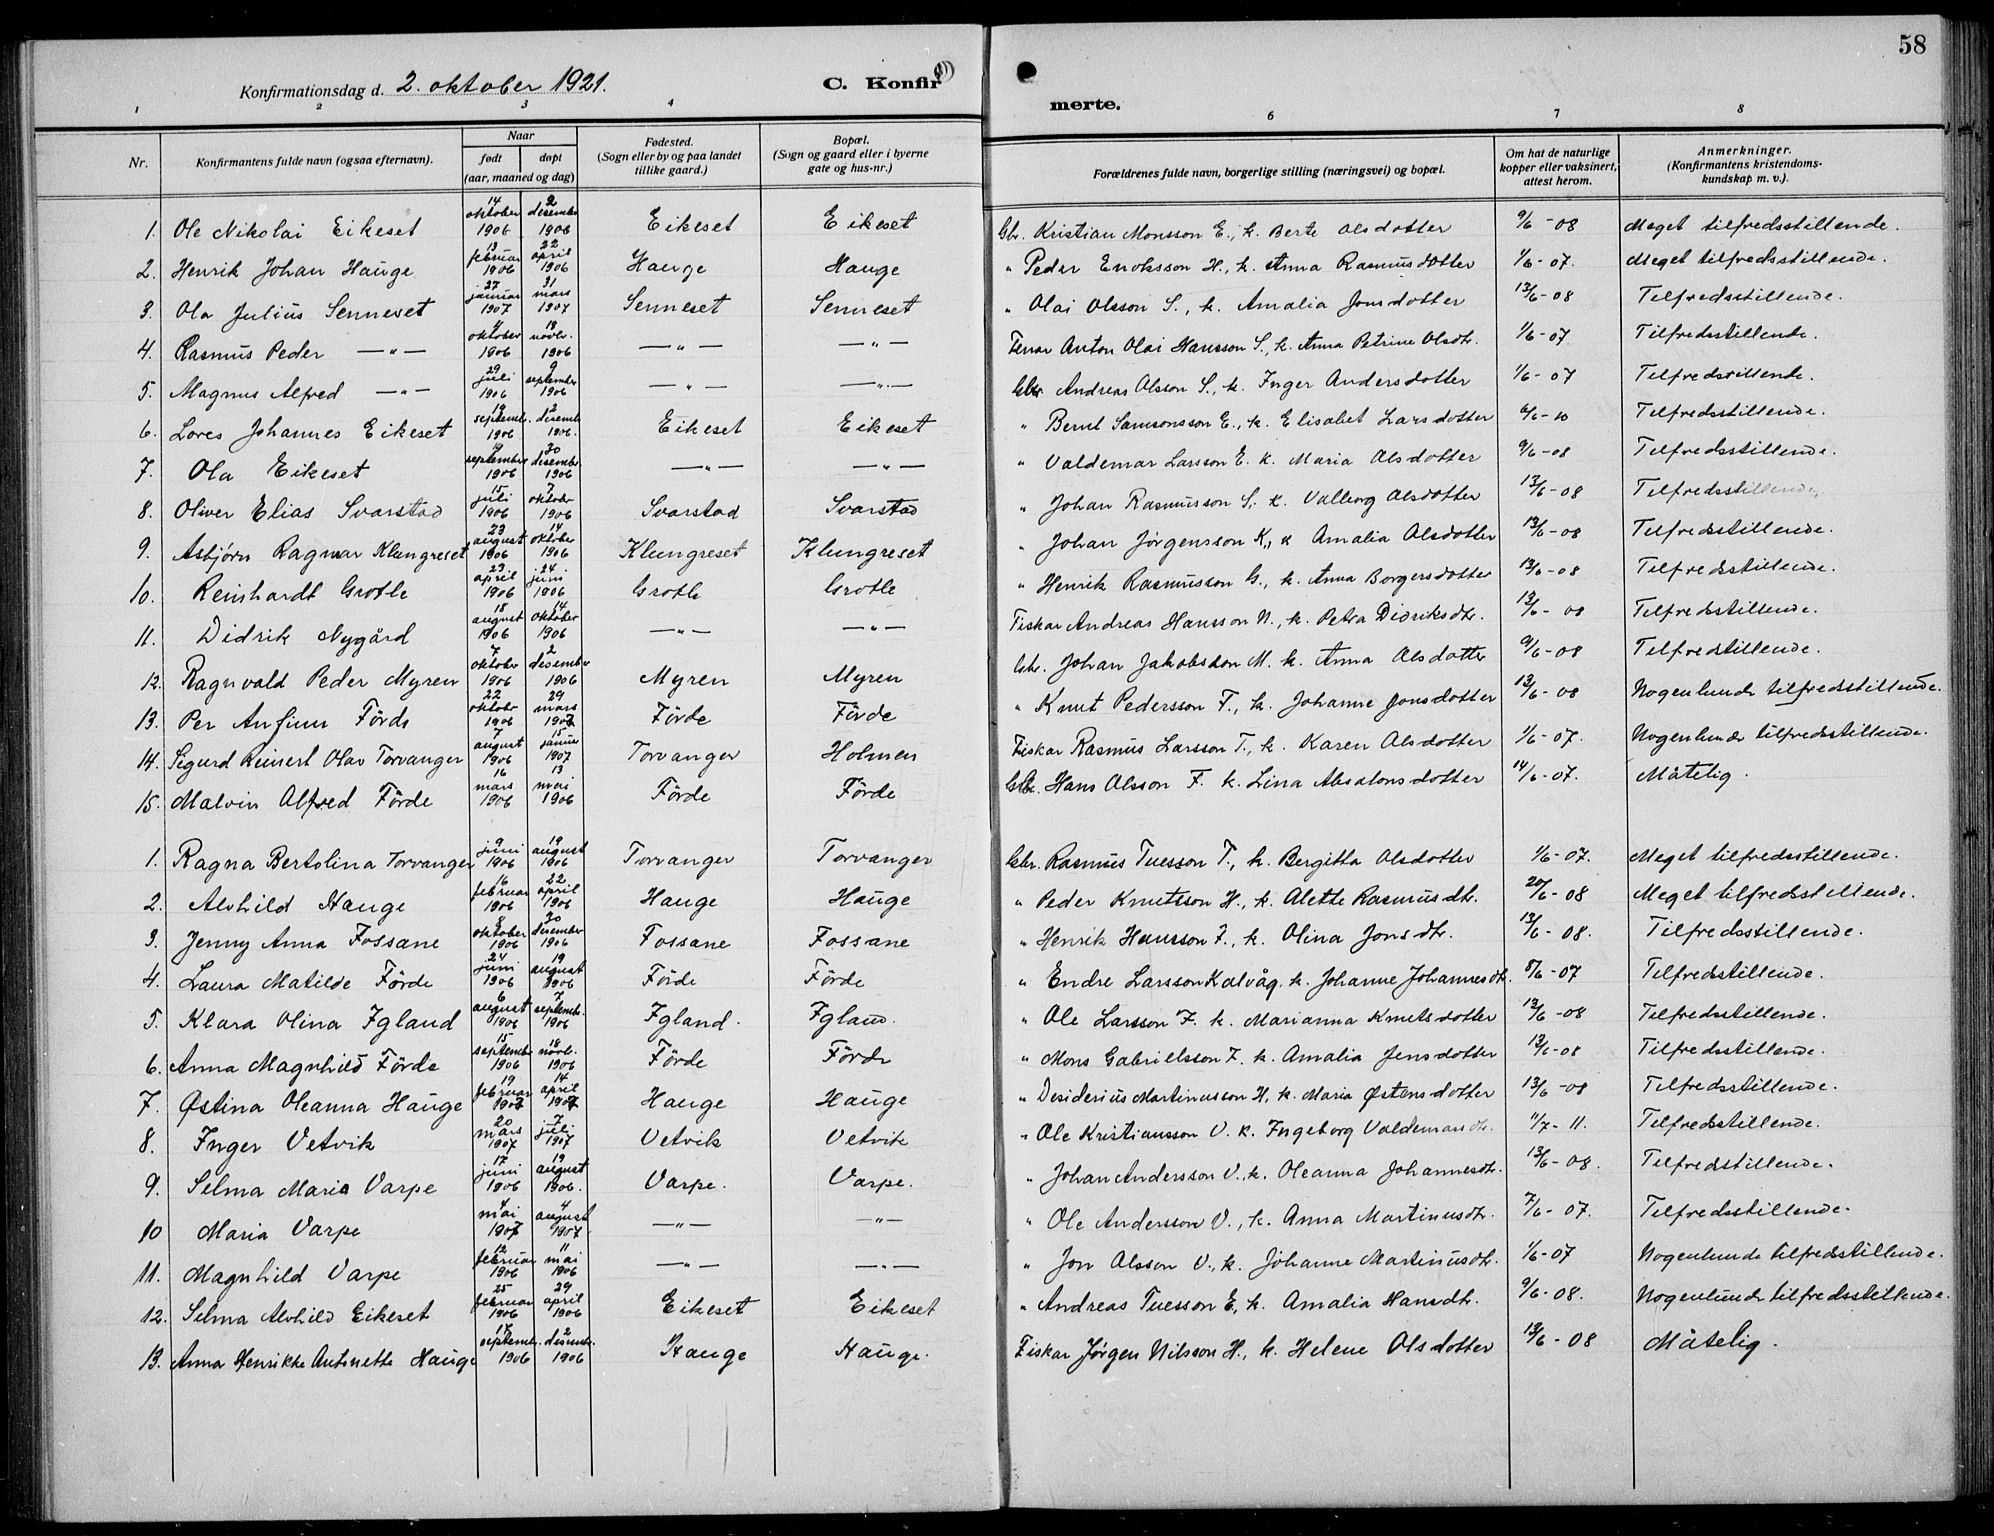 58
Konfirmationsdag d. 2. oktober 1921. C. Konfir merte.
1 2 3 4 6 7 8
Nr. Konfirmantens fulde navn (ogsaa efternavn). Naar født døpt (aar, maaned og dag) Fødested. (Sogn eller by og paa landet tillike gaard.) Bopæl. (Sogn og gaard eller i byerne gate og hus-nr.) Forældrenes fulde navn, borgerlige stilling (næringsvei) og bopæl. Om hat de naturlige kopper eller vaksinert, attest herom. Anmerkninger. (Konfirmantens kristendoms-kundskap m. v.).
1. Ole Nikolai Eikeset 14 oktober 1906 2 desember 1906 Eikeset Eikeset Gbr. Kristian Monsson E., k. Berte Olsdotter 9/6-08 Meget tilfredsstillende.
2. Henrik Johan Hauge 13 februar 1906 22 april 1906 Hauge Hauge " Peder Enoksson H., k. Anna Rasmusdotter 1/6-07. Meget tilfredsstillende.
3. Ola Julius Senneset 27 januar 1907 31 mars 1907 Senneset Senneset " Olai Olsson S., k. Amalia Jonsdotter 13/6-08 Tilfredsstillende.
4. Rasmus Peder —"— 4 oktober 1906 18 novbr. 1906 —"— —"— Anton Olai Hansson S., k. Anna Petrine Olsdtr. 1/6-07 Tilfredsstillende.
5. Magnus Alfred —"— 29 juli 1906 9 september 1906 —"— —"— Gbr. Andreas Olsson S., k. Inger Andersdotter 1/6-07 Tilfredsstillende.
6. Lores Johannes Eikeset 19 septembr. 1906 2 desembr. 1906. Eikeset Eikeset " Bernt Samsonsson E., k. Elisabet Larsdotter 6/6-10 Tilfredsstillende.
7. Ola Eikeset september 1906 30 desember 1906 —"— —"— " Valdemar Larsson E. k. Maria Olsdotter 9/6-08 Tilfredsstillende.
8. Oliver Elias Svarstad 15 juli 1906 7 oktober 1906 Svarstad Svarstad " Johan Rasmusson S., k. Valborg Olsdotter 13/6-08 Tilfredsstillende.
9. Asbjørn Ragnar Klungreset 23 august 1906 14 oktober 1906 Klungreset Klungreset " Johan Jørgensson K., k Amalia Olsdotter 13/6-08 Tilfredsstillende.
10. Reinhardt Grotle 23 april 1906 24 juni 1906 Grotle Grotle " Henrik Rasmusson G., k. Anna Borgersdotter 13/6-08 Tilfredsstillende.
11. Didrik Nygård 18 august 1906 14 oktober 1906 —"— —"— Fiskar Andreas Hansson N., k. Petra Didriksdtr. 13/6-08 Tilfredsstillende.
12. Ragnvald Peder Myren 7 oktober 1906 2 desember 1906 Myren Myren Gbr. Johan Jakobsson M. k. Anna Olsdotter 9/6-08 Tilfredsstillende.
13. Per Anfinn Förde 22 oktobr 1906 29 mars 1907 Förde Förde " Knut Pedersson F., k. Johanne Jonsdotter 13/6-08 Nogenlunde tilfredsstillende.
14. Sigurd Reinert Olav Torvanger 7 august 1906 15 januar 1907 Torvanger Holmen Fiskar Rasmus Larsson T., k. Karen Olsdotter 1/6-07. Nogenlunde tilfredsstillende.
15. Malvin Alfred Förde 16 mars 1906 13 mai 1906 Förde Förde Gbr. Hans Olsson F. k. Lina Absalonsdotter 14/6-07. Måtelig.
1. Ragna Bertolina Torvanger 9 juni 1906 19 august 1906 Torvanger Torvanger Gbr. Rasmus Tuesson T., k. Bergitta Olsdotter 1/6-07. Meget tilfredsstillende.
2. Alvhild Hauge 16 februar 1906 22 april 1906 Hauge Hauge " Peder Knutsson H., k. Alette Rasmusdtr. 20/6-08 Meget tilfredsstillende.
3. Jenny Anna Fossane 8 oktober 1906 30 desember 1906 Fossane Fossane " Henrik Hansson F., k. Olina Jonsdtr. 13/6-08. Tilfredsstillende.
4. Laura Matilde Förde 24 juni 1906 19 august 1906 Förde Förde " Endre Larsson Kalvåg. k. Johanne Johannesdtr. 8/6-07 Tilfredsstillende.
5. Klara Olina Igland 6 august 1906 7 septembr. 1906 Igland. Igland. " Ole Larsson I. k. Marianna Knutsdotter 13/6-08 Tilfredsstillende.
6. Anna Magnhild Förde 15 september 1906 18 novbr. 1906 Förde Förde " Mons Gabrielsson F. k. Amalia Jensdotter 13/6-08 Tilfredsstillende.
7. Østina Oleanna Hauge 19 februar 1907 14 april 1907 Hauge Hauge " Desiderius Martinusson H. k. Maria Østensdotter 13/6-08 Tilfredsstillende.
8. Inger Vetvik 20 mars 1907 7 juli 1907 Vetvik Vetvik " Ole Kristiansson V. k. Ingeborg Valdemarsdtr. 11/7-11. Tilfredsstillende.
9. Selma Maria Varpe 17 juni 1906 19 august 1906. Varpe. Varpe. " Johan Andersson V., k. Oleanna Johannesdtr. 13/6-08. Tilfredsstillende.
10 Maria Varpe 4 mai 1907 4 august 1907. —"— —"— " Ole Andersson V., k. Anna Martinusdtr. 7/6-07. Tilfredsstillende.
11. Magnhild Varpe 12 februar 1906 11 mai 1906 —"— —"— " Jon Olsson V., k. Johanne Martinusdtr. 1/6-07 Nogenlunde tilfredsstillende.
12. Selma Alvhild Eikeset 25 februar 1906 29 april 1906 Eikeset Eikeset " Andreas Tuesson E, k. Amalia Hansdtr. 9/6-08. Nogenlunde tilfredsstillende.
13. Anna Henrikke Antonette Hauge 17 septembr. 1906 2 desembr. 1906 Hauge Hauge. Fiskar Jørgen Nilsson H., k. Helene Olsdotter 13/6-08 Måtelig.